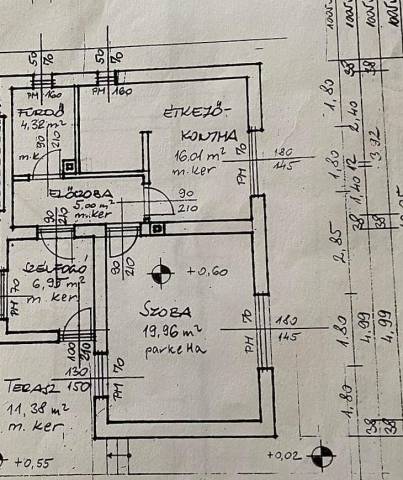 50 70
50 70
PM 160
PM 160
FÜRDŐ
4,32 m²
m.k
90 210
ÉTKEZŐ-
KONYHA
16.01 m²
m.ker
PM 70
180
145
ELŐSZOBA
5.00 m²
m.ker
90
210
90 210
90 210
SZÉLFOGÓ
6,95 m²
m. ker
70
+0,60
SZOBA
19,96 m²
parketta
PM 70
180
145
100 210
130
150
PM 70
TERASZ
11,38 m²
m. ker
+0,55
+0,02
38
38
1,80
2,40
3,92
1,80
1,40
12
38
38
2,85
1,80
4,99
4,99
1,80
38
38